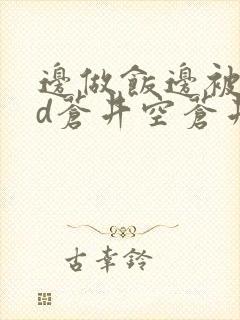 邊做飯邊被
d蒼井空蒼井
古幸鈴